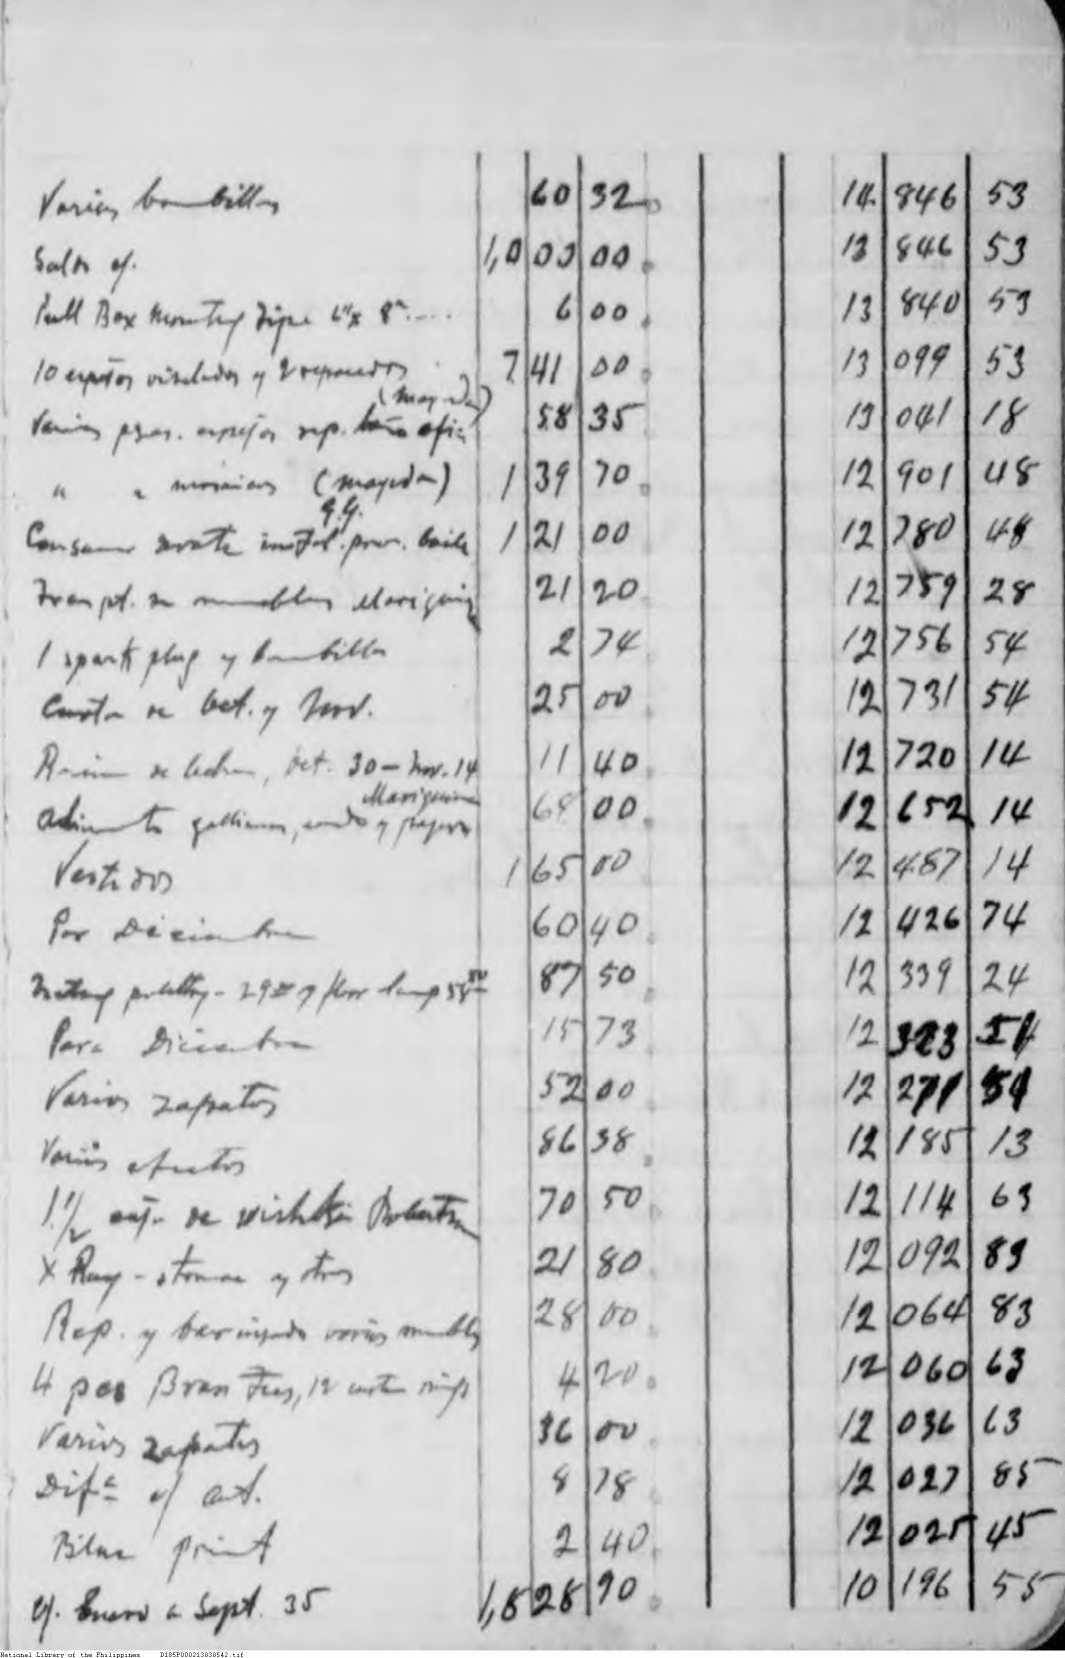 Varias bombillas 60 32 14 846 53
Saldo c/. 1,000 00 13 846 53
Pull Box Mounting Type 6"x 8" .... 6 00 13 840 53
10 espejos viselados y 2 reparados 741 00 13 099 53
(mayordo)
Varios pzas. espejos rep. baño ofic 58 35 13 041 18
" " mosaicos (mayordo) 139 70 12 901 48
G.G.
Consumo instal. prov. baile 121 00 12 780 48
Transpt. de muebles Mariquina 21 20 12 759 28
1 spark plug y bombilla 2 74 12 756 54
Cuota de Oct. y Nov. 25 00 12 731 54
de leche, Oct. 30 - Nov. 14 11 40 12 720 14
Mariquina
Alimento gallinas, y pajaros 68 00 12 652 14
Vestidos 165 00 12 487 14
Por Diciembre 60 40 12 426 74
poultry - 29 y floor lamp 58 50 87 50 12 339 24
Para Diciembre 15 73 12 323 51
Varios zapatos 52 00 12 271 51
Varios efectos 86 38 12 185 13
1 1/2 caj. de Robertson 70 50 12 114 63
X Ray - stomac y otros 21 80 12 092 83
Rep. y barnizado varios muebles 28 00 12 064 83
4 pcs Brass Tees, 12 rings 4 20 12 060 63
Varios zapatos 36 00 12 036 63
Difª c/ ant. 8 78 12 027 85
Blue print 2 40 12 025 45
c/. Enero a Sept. 35 1,828 90 10 196 55
National Library of the Philippines D185P000213030542.tif